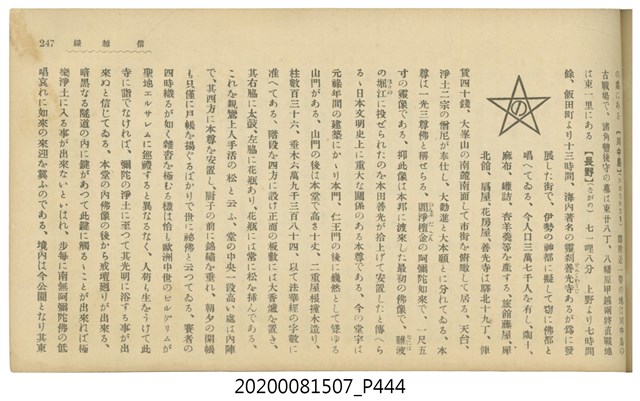 247
信越線
の﻿東にある【川中島】
古戰場で、諸角豐後守の墓は東廿八丁、八幡原甲越兩將直戰地
は東一里にある【長野】(ながの) 七一哩八分 上野より七時間
餘、飯田町より十三時間、海内著名の靈刹善光寺あるが爲に發
展した街で、伊勢の神都に擬して窃に佛都と
唱へてゐる、今人口三萬七千人を有し、
麻布、雜誌、杏羊羹等を產する、旅舘藤屋、犀
北館、扇屋、花房屋善光寺は驛北十九丁、
賃四十錢、大峯山の南麓南面して市街を俯瞰して居る、天台、
淨土二宗の僧尼が奉仕し、大勸進と大本願とに分れてゐる、本
尊は一光三尊佛と稱せらる、閻浮檀金の阿彌陀如來で、一尺五
寸の靈像である、抑此像は本邦に渡來した最初の佛像で、難波
の堀江に投ぜられたのを本田善光が拾上げて安置したと傳へら
る、日本文明史上に重大な關係のある本尊である、今の堂宇は
元祿年間の建築にかゝり本門、仁王門の後に巍然として聳ゆる
山門がある、山門の後は本堂で高さ十丈、二重屋根撞木造り、
柱數百三十六、垂木六萬九千三百八十四、以て法華經の字數に
准へてある、階段を四方に設け正面の板敷には大香爐を置き、
其右脇に太鼓、左脇に花瓶あり、花瓶には常に松を挿んである、
これを親鸞上人手活の松と云ふ、堂の中央一段高い處は内陣
で、其西方に本尊を安置し、厨子の前に錦繡を垂れ、朝夕の開帳
も只僅に戸帳を揚ぐるばかりで世に祕佛と云つてゐる、賽者の
四時織るが如く雜沓を極むる樣は恰も歐洲中世のピルグリムが
聖地エルサレムに巡禮すると異なるなく、人苟も生をうけて此
寺に詣でなければ、彌陀の淨土に至つて其光明に浴する事が出
來ぬと信じてゐる、本堂の内佛像の後から戒壇廻りが出來る、
暗黑なる隧道の内に鍵があつて此鍵に觸るゝことが出來れば極
樂淨土に入る事が出來ないといはれ、步每に南無阿彌陀佛の低
唱哀れに如來の來迎を冀ふのである、境内は今公園となり其東
の
20200081507_P444